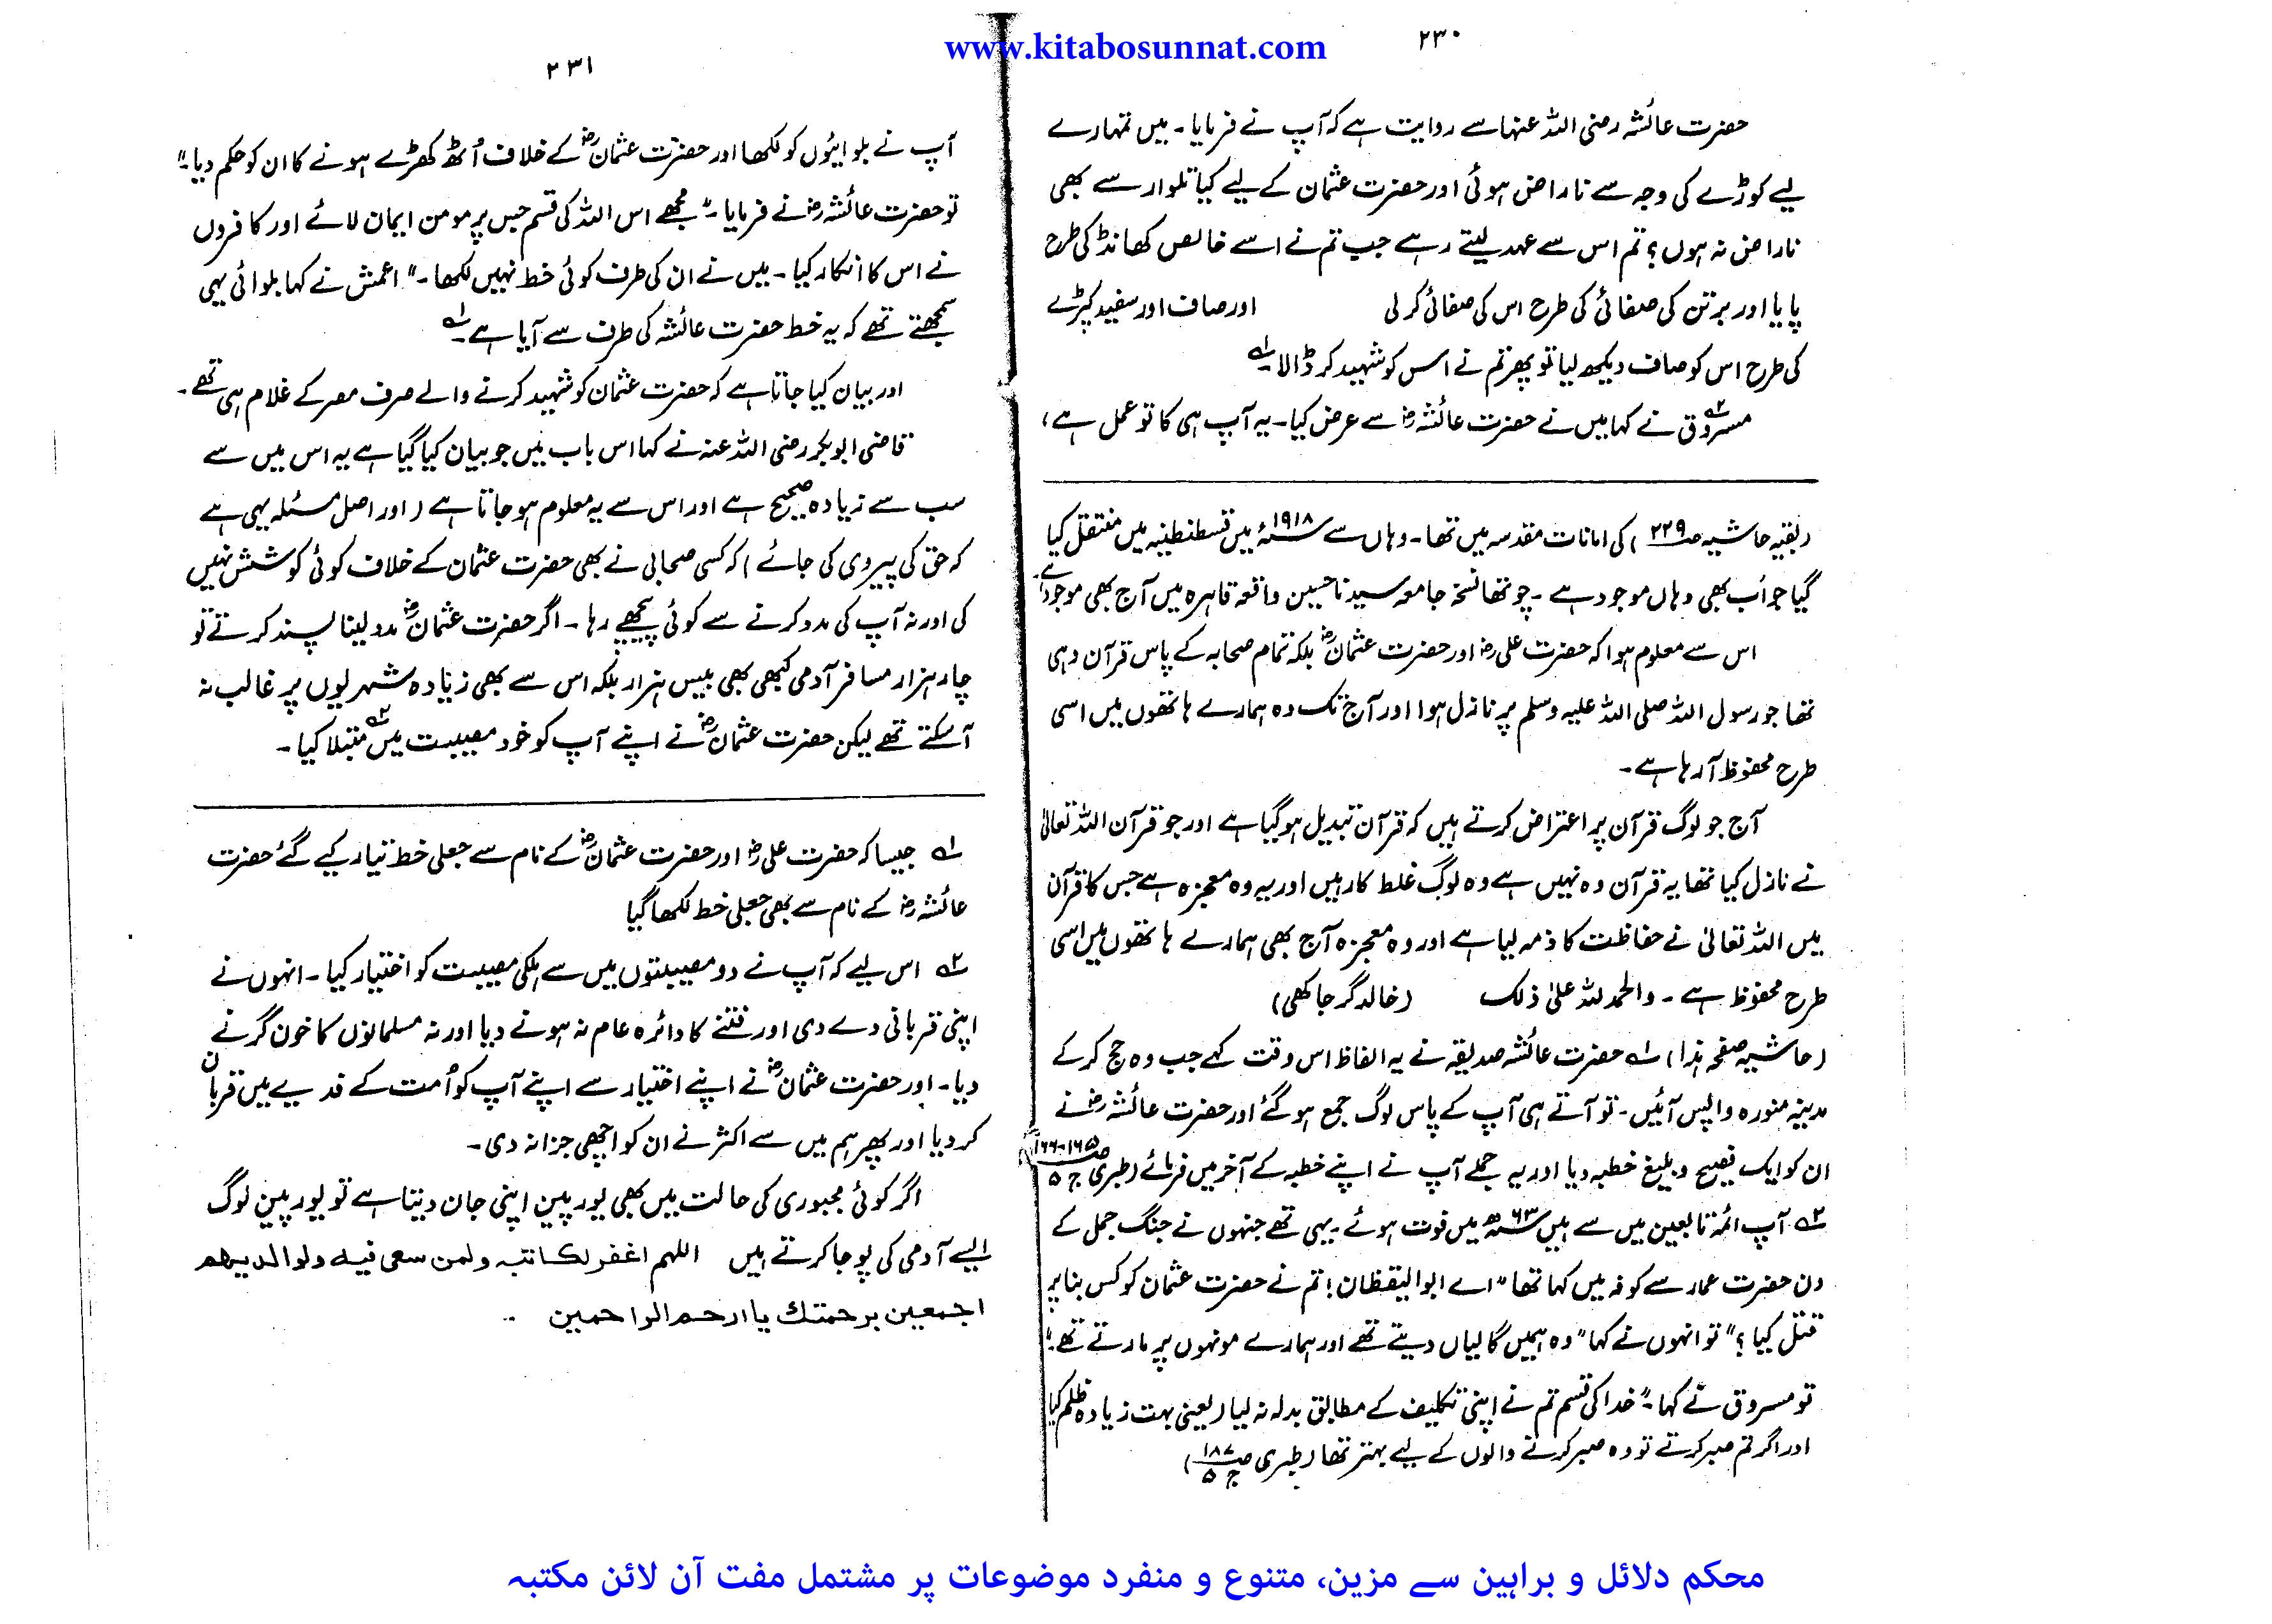 www.kitabosunnat.com
۲۳۰
حضرت عائشہ رضی اللہ عنہا سے روایت ہے کہ آپ نے فرمایا۔ میں تمہارے
لیے کوڑے کی وجہ سے ناراض ہوئی اور حضرت عثمان کے لیے کیا تلوار سے بھی
ناراض نہ ہوں؟ تم اس سے عہد لیتے رہے جب تم نے اسے خالص کھانڈ کی طرح
پایا اور برتن کی صفائی کی طرح اس کی صفائی کر لی اور صاف اور سفید کپڑے
کی طرح اس کو صاف دیکھ لیا تو پھر تم نے اس کو شہید کر ڈالا۔ ؎۱
مسروق ؎۲ نے کہا میں نے حضرت عائشہ رضؓ سے عرض کیا۔ یہ آپ ہی کا تو عمل ہے،
(بقیہ حاشیہ صـ ۲۲۹) کی امانات مقدسہ میں تھا۔ وہاں سے ۱۹۱۸ء میں قسطنطنیہ میں منتقل کیا
گیا جو اب بھی وہاں موجود ہے۔ چوتھا نسخہ جامعہ سیدنا حسین واقعہ قاہرہ میں آج بھی موجود ہے۔
اس سے معلوم ہوا کہ حضرت علی رضؓ اور حضرت عثمان رضؓ بلکہ تمام صحابہ کے پاس قرآن وہی
تھا جو رسول اللہ صلی اللہ علیہ وسلم پر نازل ہوا اور آج تک وہ ہمارے ہاتھوں میں اسی
طرح محفوظ آ رہا ہے۔
آج جو لوگ قرآن پر اعتراض کرتے ہیں کہ قرآن تبدیل ہو گیا ہے اور جو قرآن اللہ تعالیٰ
نے نازل کیا تھا یہ قرآن وہ نہیں ہے وہ لوگ غلط کار ہیں اور یہ وہ معجزہ ہے جس کا قرآن
میں اللہ تعالیٰ نے حفاظت کا ذمہ لیا ہے اور وہ معجزہ آج بھی ہمارے ہاتھوں میں اسی
طرح محفوظ ہے۔ والحمد للہ علیٰ ذلک (خالد گرجاکھی)
(حاشیہ صفحہ ہذا) ؎۱ حضرت عائشہ صدیقہ نے یہ الفاظ اس وقت کہے جب وہ حج کر کے
مدینہ منورہ واپس آئیں۔ تو آتے ہی آپ کے پاس لوگ جمع ہو گئے اور حضرت عائشہ رضؓ نے
ان کو ایک فصیح و بلیغ خطبہ دیا اور یہ جملے آپ نے اپنے خطبہ کے آخر میں فرمائے (طبری صـ ۱۶۵-۱۶۶ ج ۵
؎۲ آپ ائمہ تابعین میں سے ہیں ۶۳ھ میں فوت ہوئے۔ یہی تھے جنہوں نے جنگ جمل کے
دن حضرت عمار سے کوفہ میں کہا تھا "اے ابو الیقظان! تم نے حضرت عثمان کو کس بنا پر
قتل کیا؟" تو انہوں نے کہا "وہ ہمیں گالیاں دیتے تھے اور ہمارے مونہوں پر مارتے تھے۔"
تو مسروق نے کہا۔ "خدا کی قسم تم نے اپنی تکلیف کے مطابق بدلہ نہ لیا (یعنی بہت زیادہ ظلم کیا
اور اگر تم صبر کرتے تو وہ صبر کرنے والوں کے لیے بہتر تھا (طبری صـ ۱۸۷ ج ۵)
۲۳۱
آپ نے بلوائیوں کو لکھا اور حضرت عثمان رضؓ کے خلاف اُٹھ کھڑے ہونے کا ان کو حکم دیا۔"
تو حضرت عائشہ رضؓ نے فرمایا۔ "مجھے اس اللہ کی قسم جس پر مومن ایمان لائے اور کافروں
نے اس کا انکار کیا۔ میں نے ان کی طرف کوئی خط نہیں لکھا۔" اعمش نے کہا بلوائی یہی
سمجھتے تھے کہ یہ خط حضرت عائشہ کی طرف سے آیا ہے۔ ؎۱
اور بیان کیا جاتا ہے کہ حضرت عثمان کو شہید کرنے والے صرف مصر کے غلام ہی تھے۔
قاضی ابوبکر رضی اللہ عنہ نے کہا اس باب میں جو بیان کیا گیا ہے یہ اس میں سے
سب سے زیادہ صحیح ہے اور اس سے یہ معلوم ہو جاتا ہے (اور اصل مسئلہ یہی ہے
کہ حق کی پیروی کی جائے) کہ کسی صحابی نے بھی حضرت عثمان کے خلاف کوئی کوشش نہیں
کی اور نہ آپ کی مدد کرنے سے کوئی پیچھے رہا۔ اگر حضرت عثمان رضؓ مدد لینا پسند کرتے تو
چار ہزار مسافر آدمی کبھی بھی بیس ہزار بلکہ اس سے بھی زیادہ شہریوں پر غالب نہ
آ سکتے تھے لیکن حضرت عثمان رضؓ نے اپنے آپ کو خود مصیبت میں ؎۲ مبتلا کیا۔
؎۱ جیسا کہ حضرت علی رضؓ اور حضرت عثمان رضؓ کے نام سے جعلی خط تیار کیے گئے حضرت
عائشہ رضؓ کے نام سے بھی جعلی خط لکھا گیا
؎۲ اس لیے کہ آپ نے دو مصیبتوں میں سے ہلکی مصیبت کو اختیار کیا۔ انہوں نے
اپنی قربانی دے دی اور فتنے کا دائرہ عام نہ ہونے دیا اور نہ مسلمانوں کا خون گرنے
دیا۔ اور حضرت عثمان رضؓ نے اپنے اختیار سے اپنے آپ کو اُمت کے فدیے میں قربان
کر دیا اور پھر ہم میں سے اکثر نے ان کو اچھی جزا نہ دی۔
اگر کوئی مجبوری کی حالت میں بھی یورپین اپنی جان دیتا ہے تو یورپین لوگ
ایسے آدمی کی پوجا کرتے ہیں اللهم اغفر لکاتبہ ولمن سعی فیہ ولوالدیہم
اجمعین برحمتك یا ارحم الراحمین
محکم دلائل و براہین سے مزین، متنوع و منفرد موضوعات پر مشتمل مفت آن لائن مکتبہ